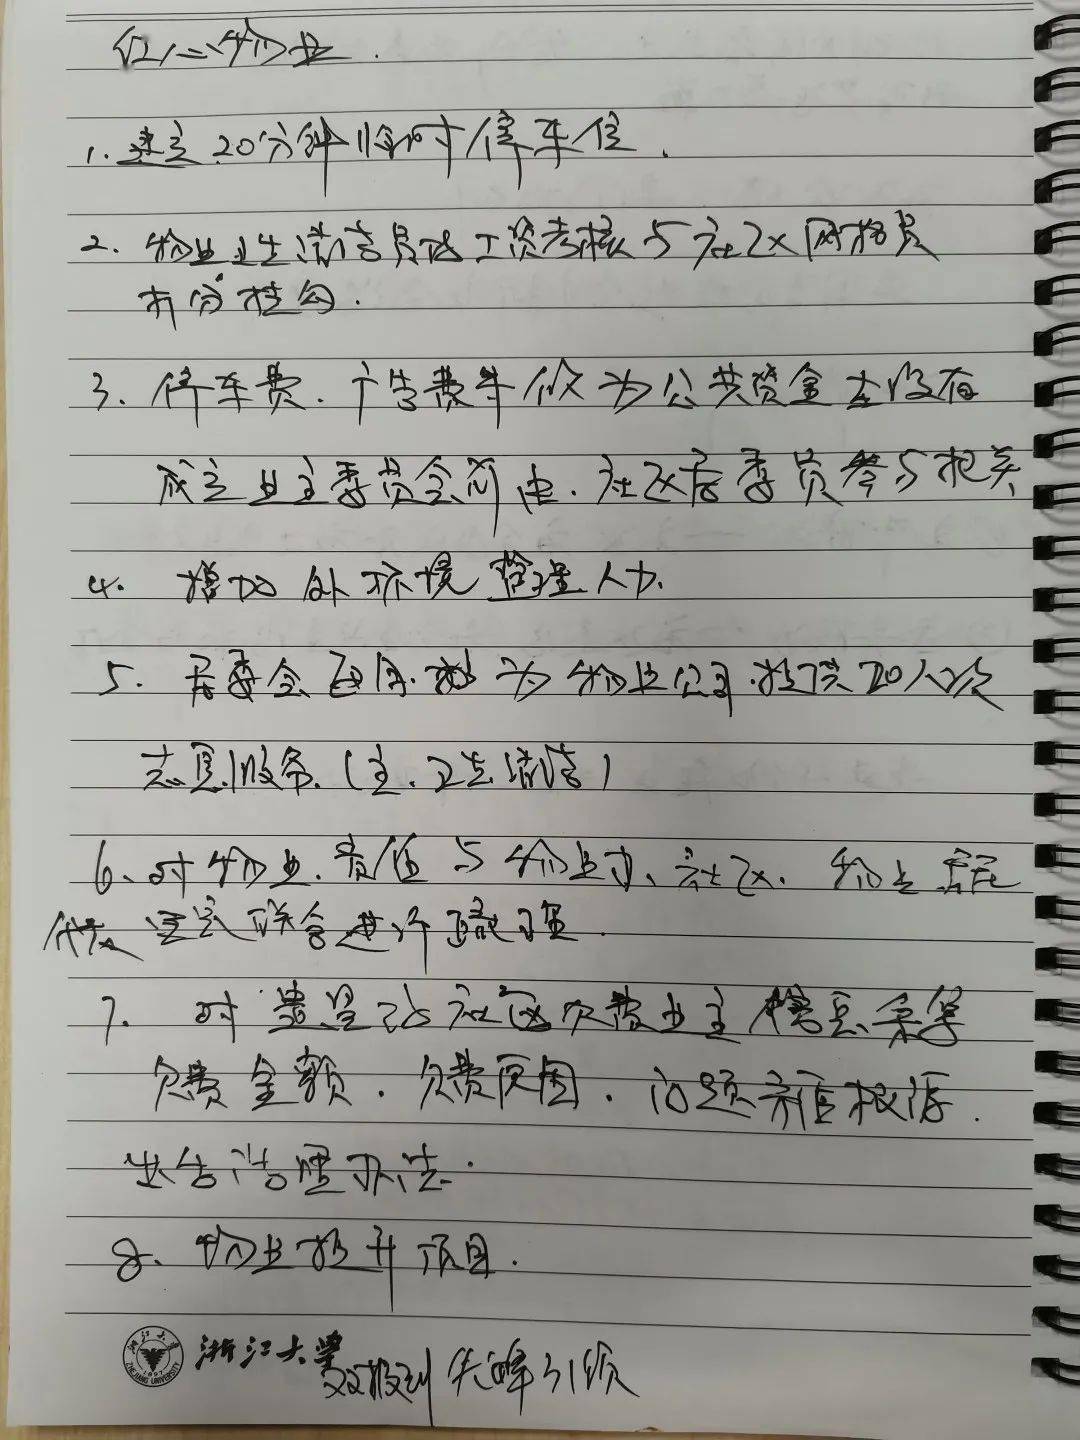 红心物业.
1. 建立20分钟临时停车位.
2. 物业卫生清洁员的工资考核与社区网格员
打分挂勾.
3. 停车费.广告费等作为公共资金在没有
成立业主委员会前由.社区居委员参与把关
4. 增加外环境管理人力.
5. 居委会每月.为物业公司.提供20人次
志愿服务.(主.卫生清洁)
6、对物业.与物业办、社区.物业
代表 联合进行
7. 对社区欠费业主
欠费金额.欠费原因.问题 根源.
治理办法.
8、物业提升项目.
浙江大学
ZHEJIANG UNIVERSITY
1897
双报到 先锋引领